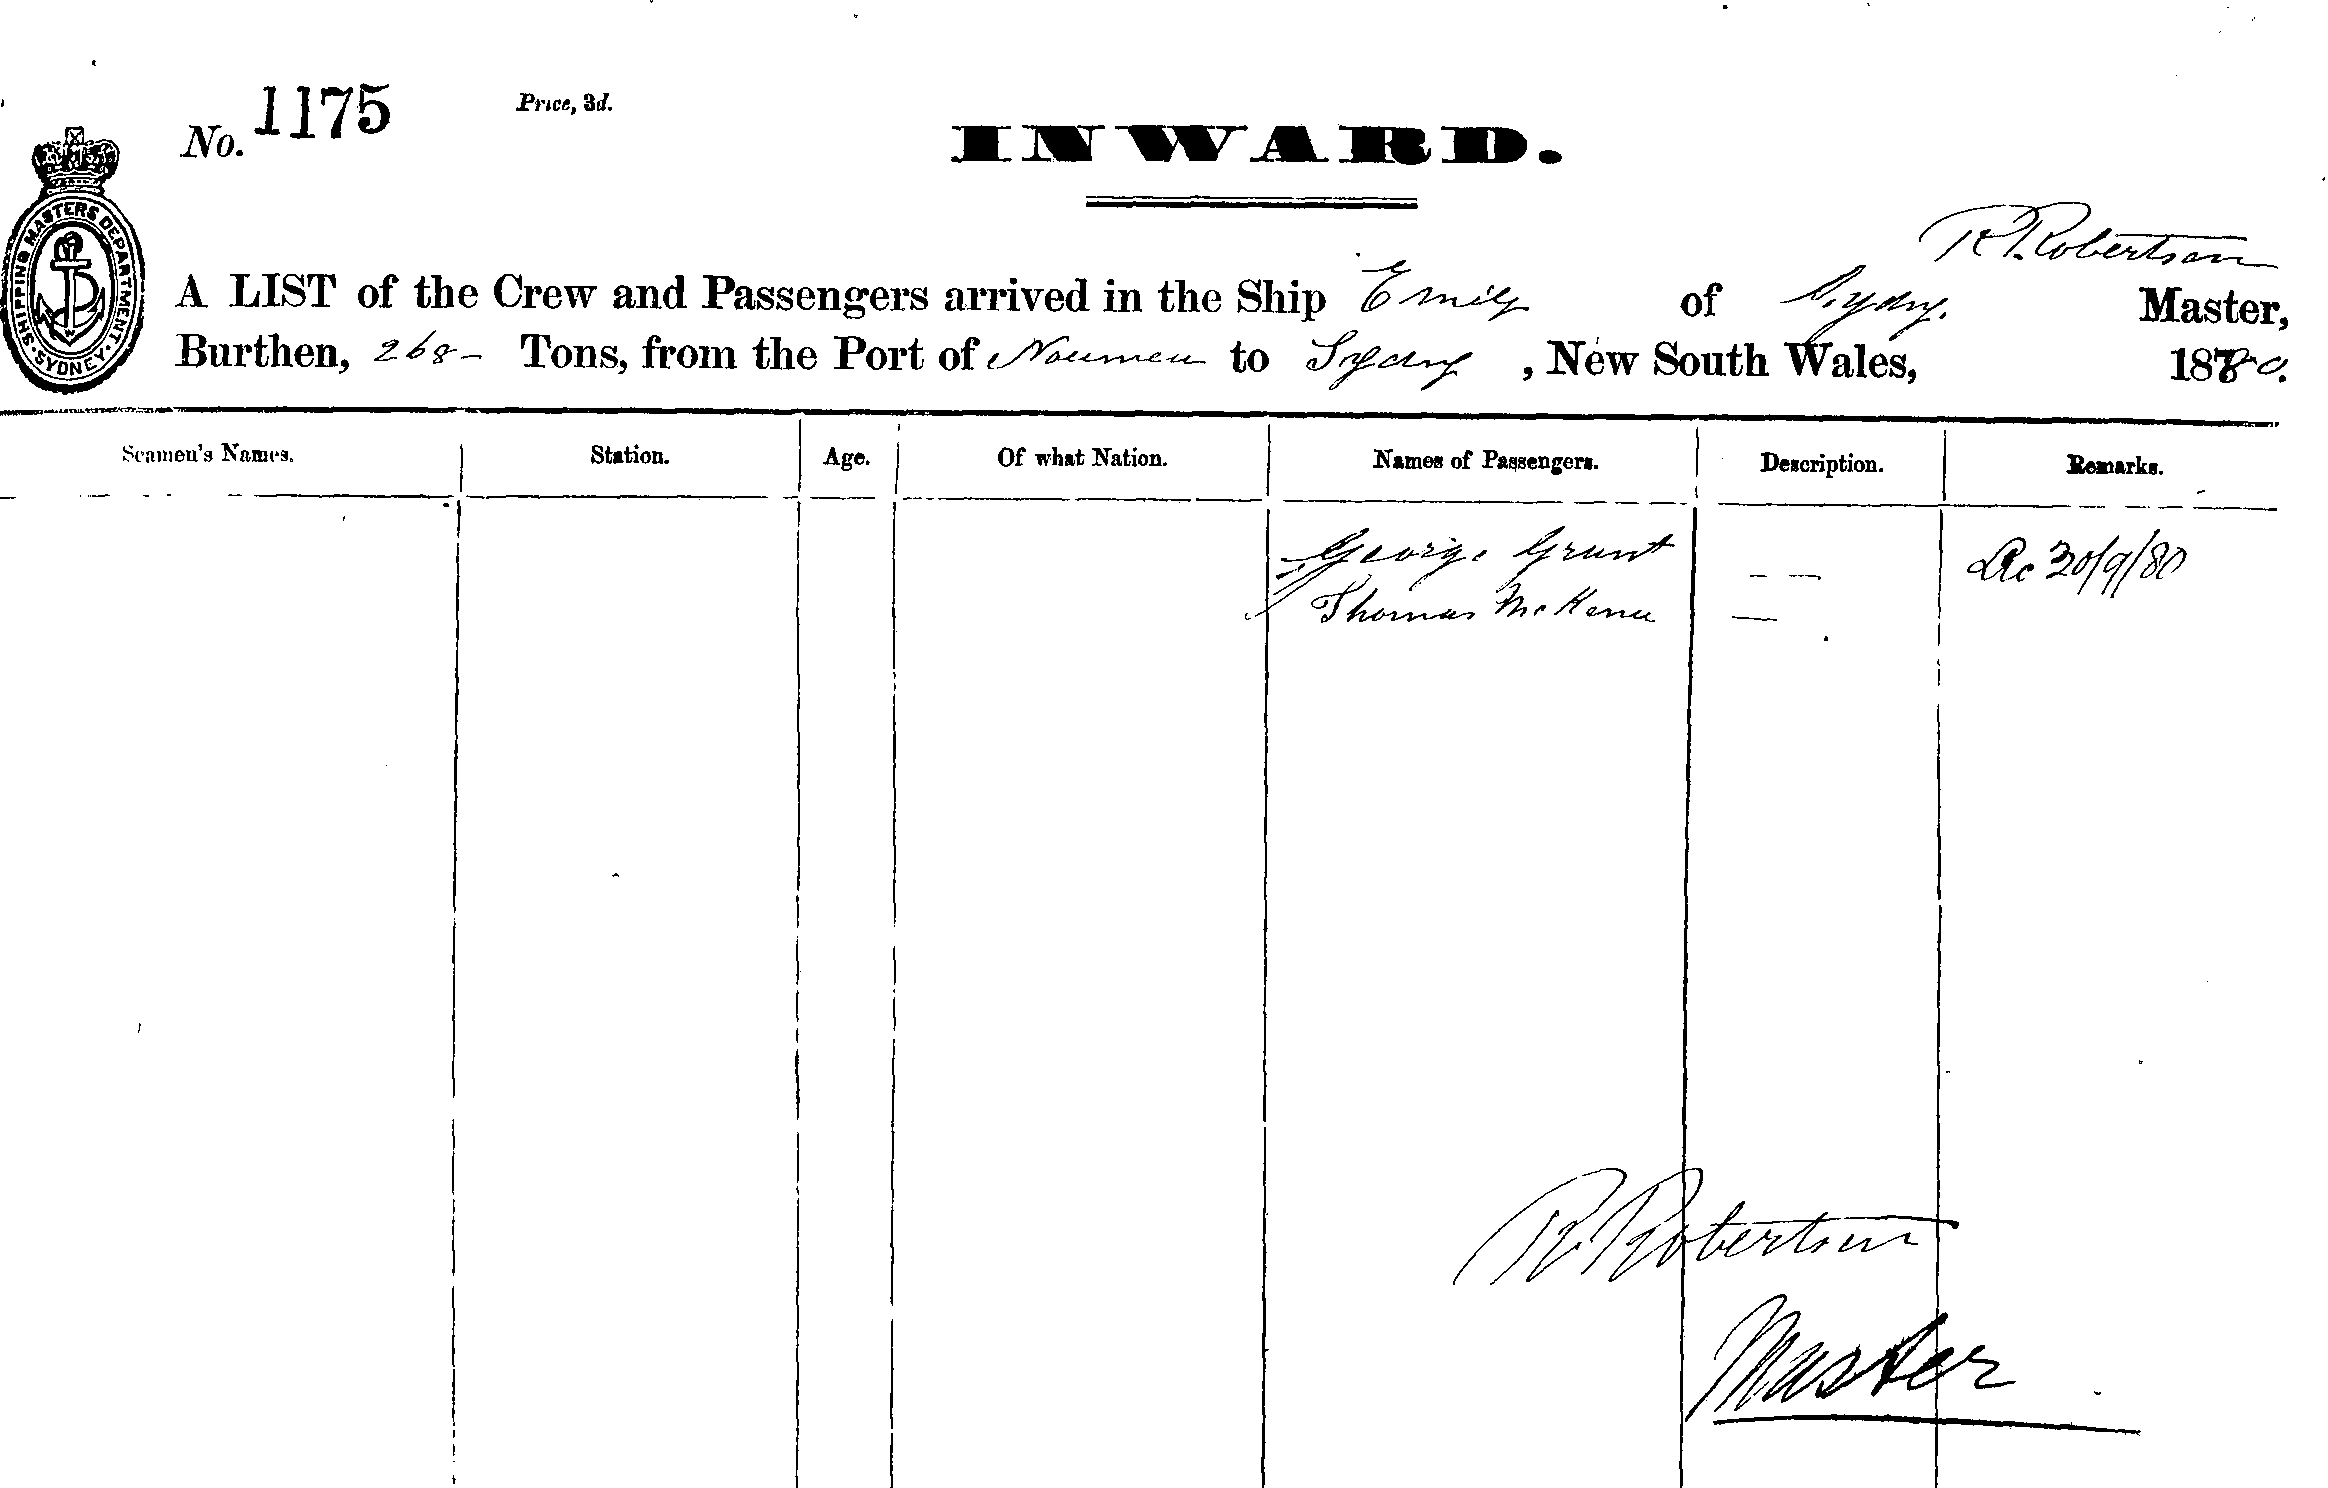 No. 1175
Price, 3d.
INWARD.
SHIPPING MASTERS DEPARTMENT. SYDNEY.
R. Robertson
A LIST of the Crew and Passengers arrived in the Ship Emily of Sydny. Master,
Burthen, 268- Tons, from the Port of Noumea to Sydny, New South Wales, 1880.
Seamen's Names. Station. Age. Of what Nation. Names of Passengers. Description. Remarks.
George Grant — — 30/9/80
Thomas —
R. Robertson
Master